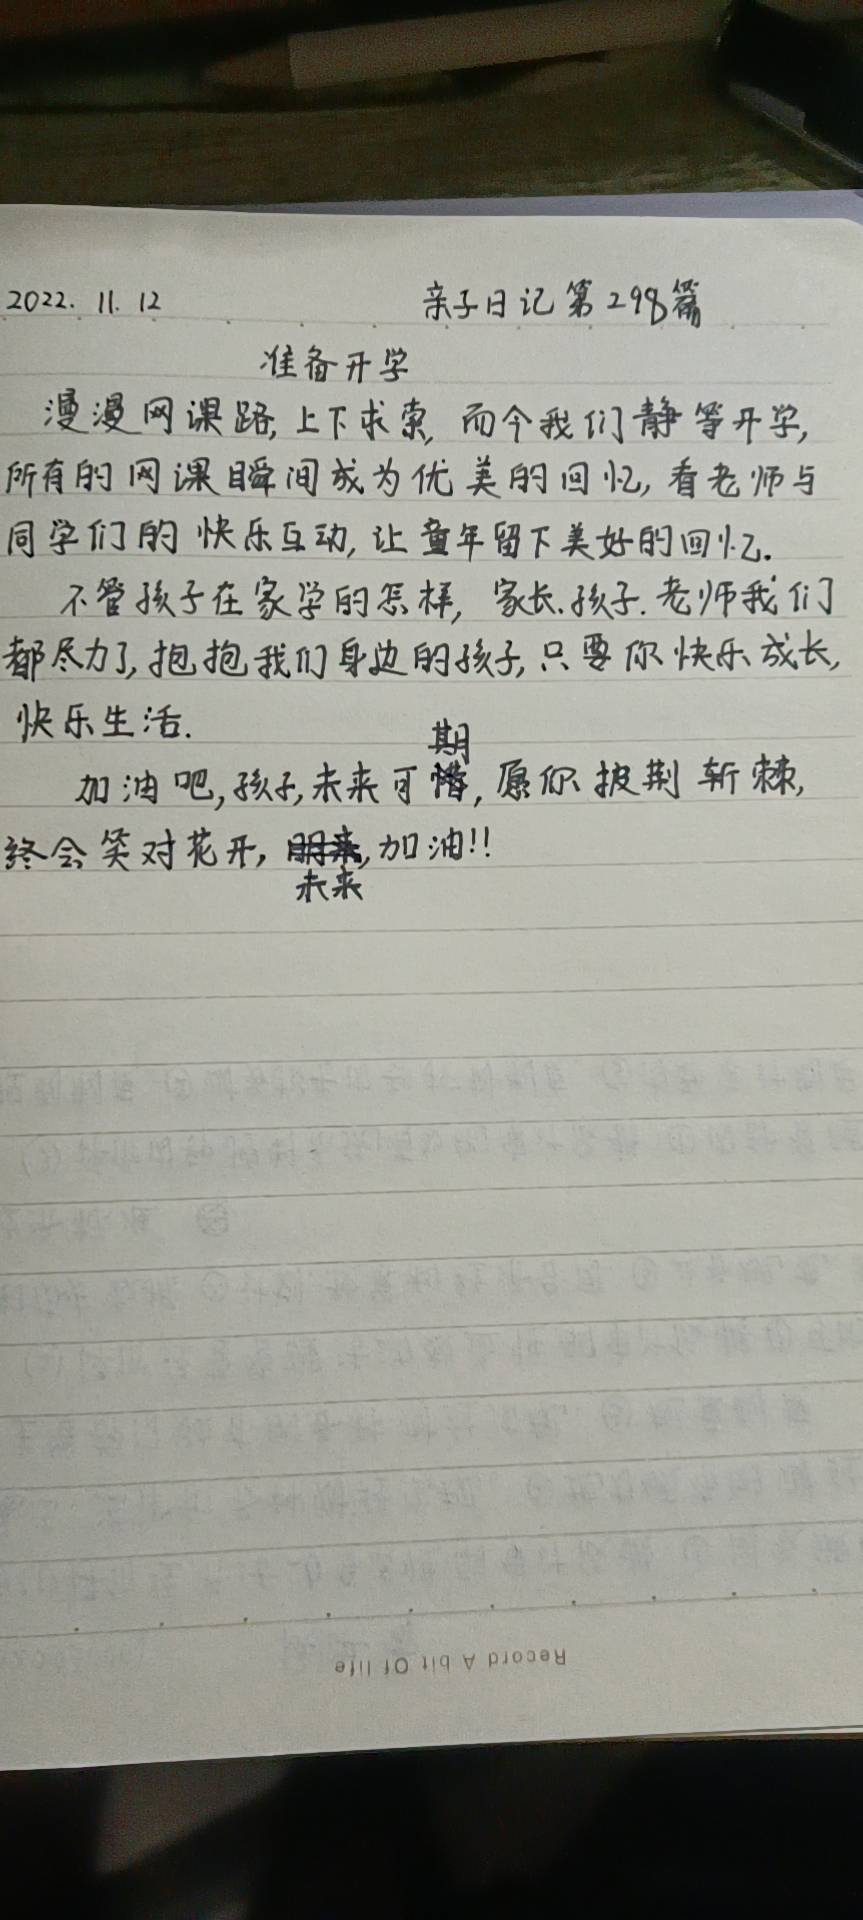 2022. 11. 12 亲子日记第298篇
准备开学
漫漫网课路,上下求索,而今我们静等开学,
所有的网课瞬间成为优美的回忆,看老师与
同学们的快乐互动,让童年留下美好的回忆.
不管孩子在家学的怎样,家长.孩子.老师我们
都尽力了,抱抱我们身边的孩子,只要你快乐成长,
快乐生活.
加油吧,孩子,未来可期,愿你披荆斩棘,
终会笑对花开,未来,加油!!
Record A bit Of life